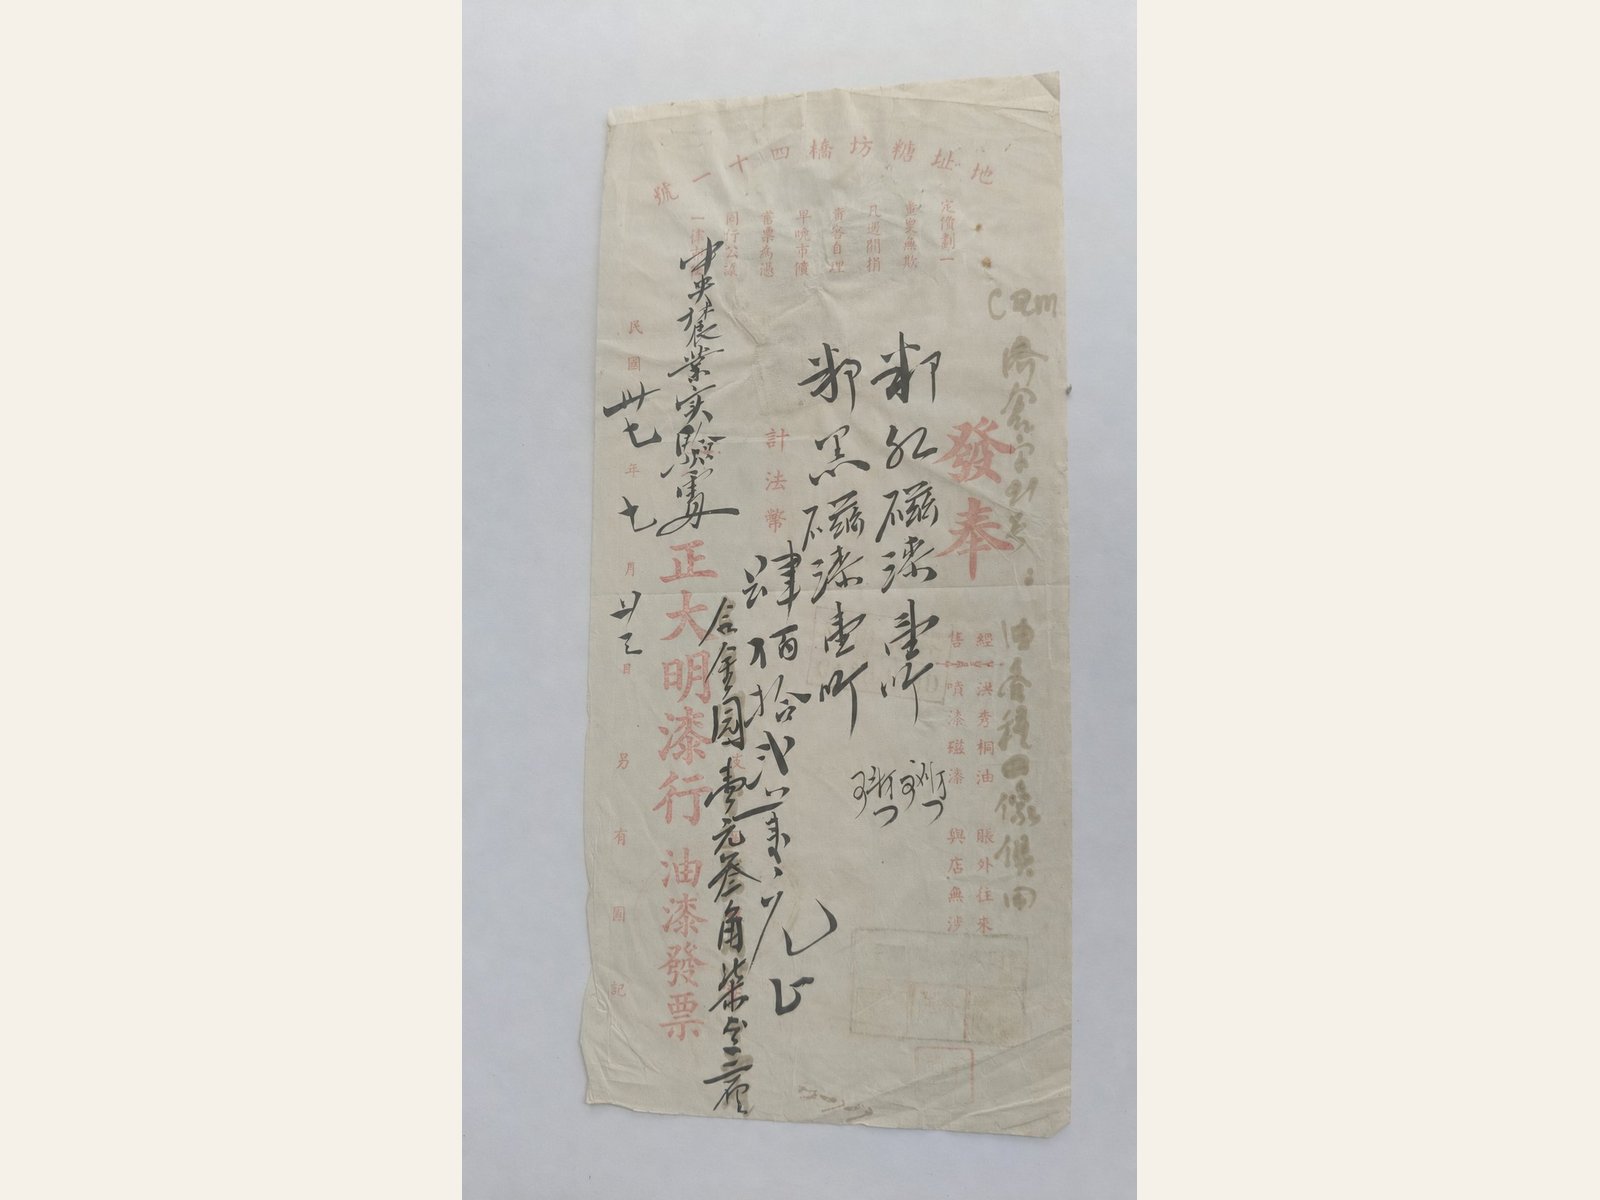 地址糖坊橋四十一號
定價劃一
童叟無欺
凡遇關捐
責客自理
早晚市價
蓄票為憑
同行公議
一律
發奉
經售
洪秀桐油
噴漆磁漆
賬外往來
與店無涉
油畫
傢俱用
紅磁漆壹听
黑磁漆壹听
計法幣
肆佰拾弍萬元正
合金圓壹元叁角柒分三厘
中央農業实驗處
正大明漆行油漆發票
民國卅七年七月廿三日
另有圖記